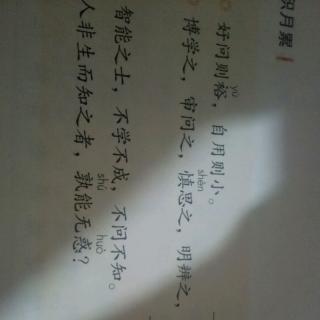 积月累
yù
好问则裕，自用则小。
shèn
博学之，审问之，慎思之，明辨之，
智能之士，不学不成，不问不知。
shú huò
人非生而知之者，孰能无惑？